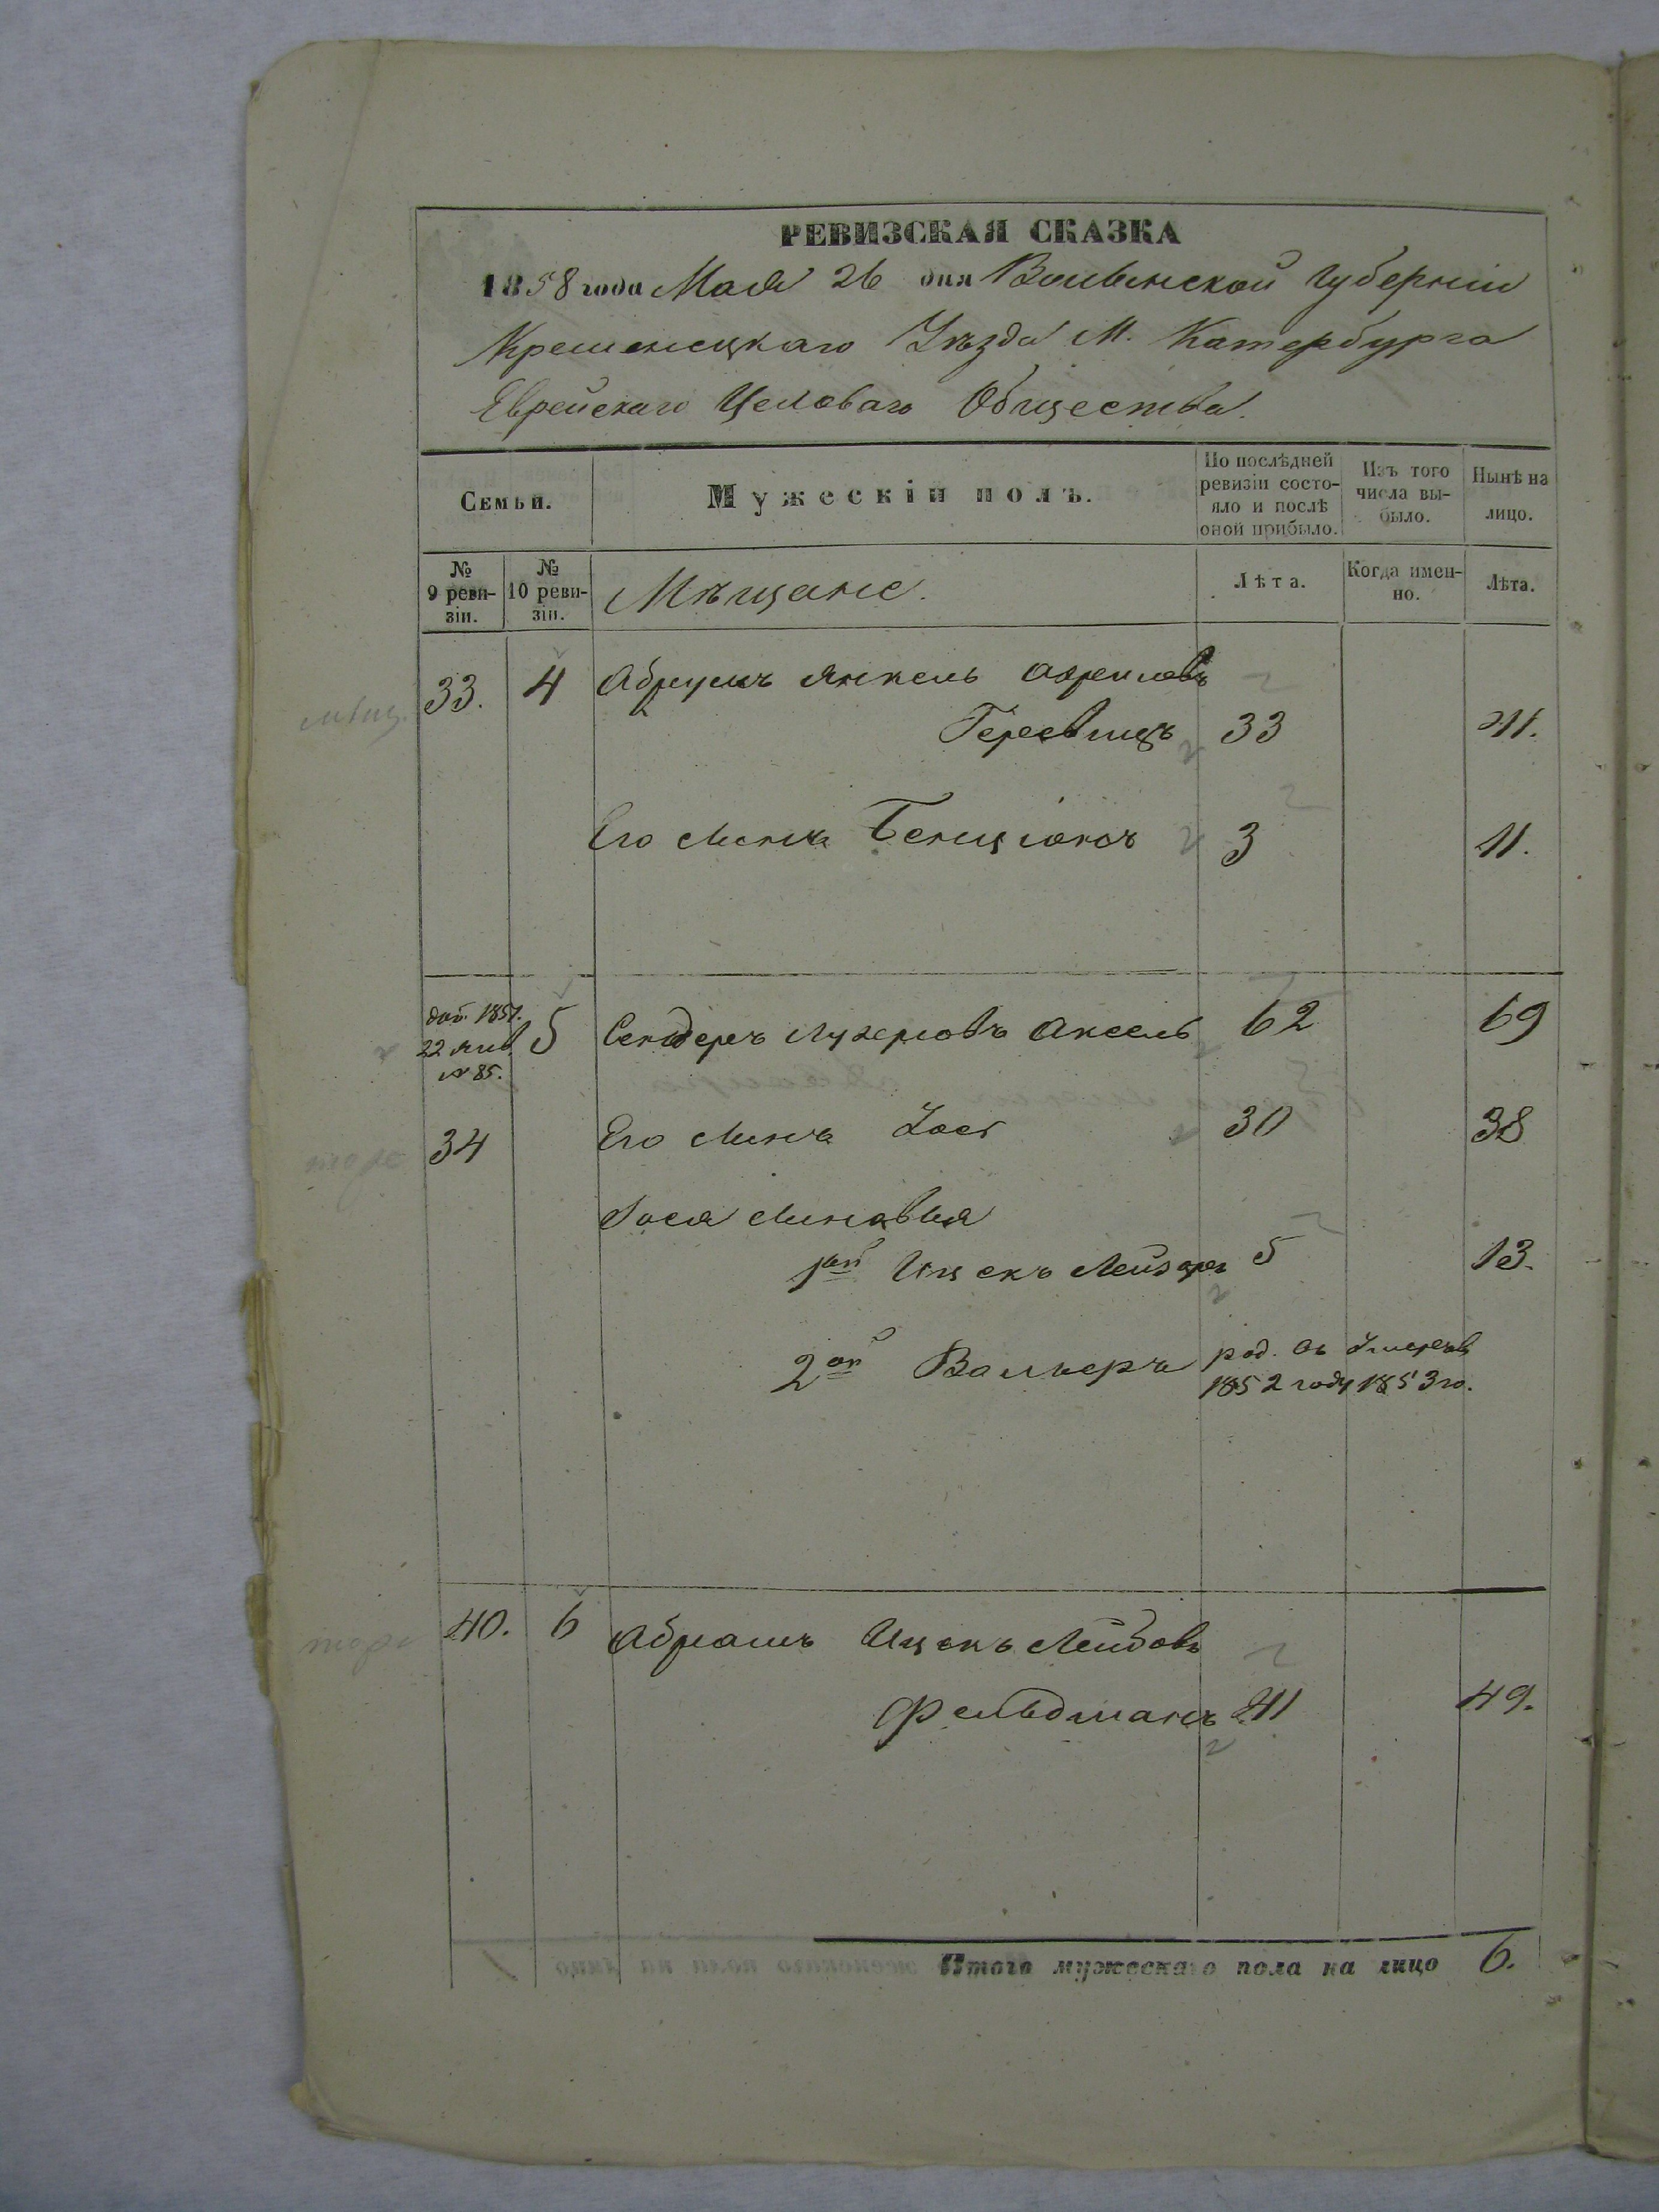 РЕВИЗСКАЯ СКАЗКА
1858 года Мая 26 дня Волынской Губерніи
Кременецкаго Уѣзда М. Катербурга
Еврейскаго Общества.
Семьи.
Мужескій полъ.
По послѣдней ревизіи состо-
яло и послѣ
оной прибыло.
Изъ того
числа вы-
было.
Нынѣ на
лицо.
№
9 реви-
зіи.
№
10 реви-
зіи.
Мѣщане.
Лѣта.
Когда имен-
но.
Лѣта.
мѣщ.
33. 4 Абрумъ Янкель
33 41.
Его сынъ Бенціонъ 3 11.
доп. 1857.
22 янв.
№ 85.
5 Сендеръ Аксель 62 69
34 Его сынъ Іось 30 38
Іося сыновья
1ый Ицекъ Лейзеръ 5 13.
2ой Волькеръ род. въ умеръ въ
1852 году 1853 го.
40. 6 Абрамъ Ицекъ Лейбовъ
Фельдманъ 41 49.
Итого мужескаго пола на лицо 6.